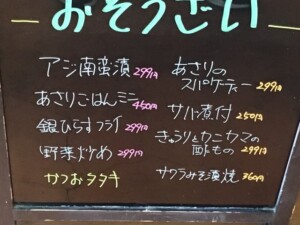 おそうざい
アジ南蛮漬 299円
あさりごはんミニ 450円
銀ひらすフライ 299円
野菜炒め 299円
かつおタタキ
あさりの
スパゲティー 299円
サバ煮付 250円
きゅうりとカニカマの
酢もの 299円
サワラみそ漬焼 360円